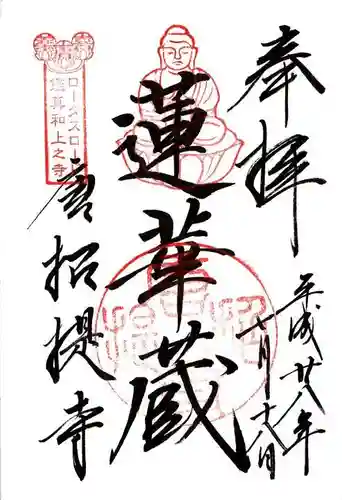 奉拝
平成廿八年
七月十八日
蓮華蔵
唐招提寺
ロータスロード
鑑真和上之寺